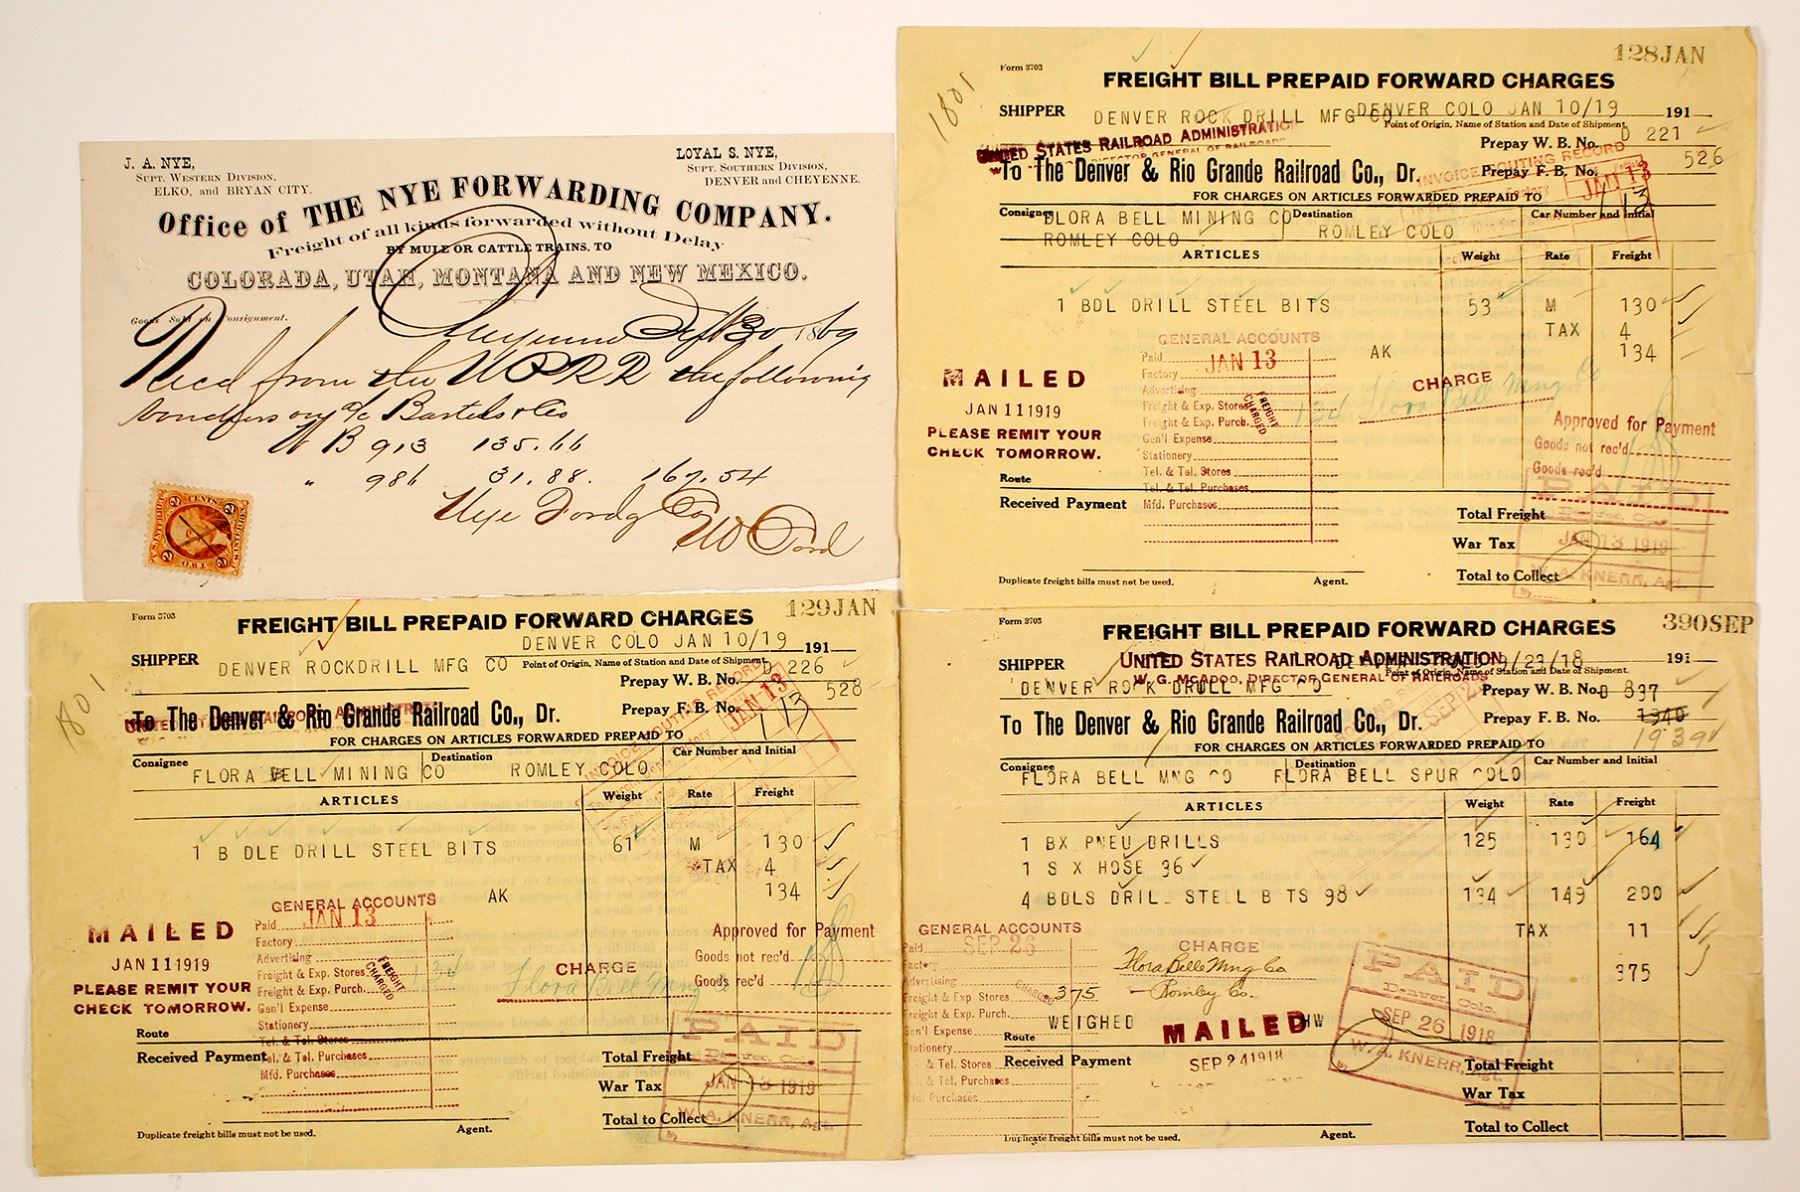 J. A. NYE,
SUPT. WESTERN DIVISION,
ELKO, and BRYAN CITY.
LOYAL S. NYE,
SUPT. SOUTHERN DIVISION,
DENVER and CHEYENNE.
Office of THE NYE FORWARDING COMPANY.
Freight of all kinds forwarded without Delay
BY MULE OR CATTLE TRAINS, TO
COLORADA, UTAH, MONTANA AND NEW MEXICO.
Goods Sold on Consignment.
Cheyenne Sept 30 1869
Recd from the UPRR the following
vouchers on a/c Bartels & Co
W B 913 135.66
" 986 31.88. 167.54
Nye Fordg Co
W Ford
2 CENTS 2
TWO
128JAN
1801
Form 3703
FREIGHT BILL PREPAID FORWARD CHARGES
SHIPPER DENVER ROCK DRILL MFG CO DENVER COLO JAN 10/19 191
Point of Origin, Name of Station and Date of Shipment
UNITED STATES RAILROAD ADMINISTRATION
DIRECTOR GENERAL OF RAILROADS
Prepay W. B. No. D 221
To The Denver & Rio Grande Railroad Co., Dr. Prepay F. B. No. 526
INVOICE ROUTING RECORD
JAN 13
FOR CHARGES ON ARTICLES FORWARDED PREPAID TO
1/13
Consignee FLORA BELL MINING CO Destination Car Number and Initial
ROMLEY COLO ROMLEY COLO
ARTICLES Weight Rate Freight
1 BDL DRILL STEEL BITS 53 M 130
TAX 4
134
AK
GENERAL ACCOUNTS
Paid JAN 13
Factory
Advertising
Freight & Exp. Stores
Freight & Exp. Purch.
Gen'l Expense
Stationery
Tel. & Tel. Stores
Tel. & Tel. Purchases
Mfd. Purchases
FREIGHT CHARGED
134
CHARGE
Flora Bell Mng Co
MAILED
JAN 11 1919
PLEASE REMIT YOUR
CHECK TOMORROW.
Approved for Payment
Goods not rec'd
Goods rec'd
Route
Received Payment
PAID
Denver, Colo.
JAN 13 1919
W. A. KNERR, Agt.
Total Freight
War Tax
Total to Collect
Duplicate freight bills must not be used. Agent.
129JAN
1801
Form 3703
FREIGHT BILL PREPAID FORWARD CHARGES
DENVER COLO JAN 10/19 191
SHIPPER DENVER ROCKDRILL MFG CO Point of Origin, Name of Station and Date of Shipment
Prepay W. B. No. D 226
528
To The Denver & Rio Grande Railroad Co., Dr. Prepay F. B. No.
INVOICE ROUTING RECORD
JAN 13
1/13
FOR CHARGES ON ARTICLES FORWARDED PREPAID TO
Consignee Destination Car Number and Initial
FLORA BELL MINING CO ROMLEY COLO
ARTICLES Weight Rate Freight
1 B DLE DRILL STEEL BITS 61 M 130
TAX 4
134
AK
GENERAL ACCOUNTS
Paid JAN 13
Factory
Advertising
Freight & Exp. Stores
Freight & Exp. Purch.
Gen'l Expense
Stationery
Tel. & Tel. Stores
Tel. & Tel. Purchases
Mfd. Purchases
FREIGHT CHARGED
134
CHARGE
Flora Bell Mng Co
MAILED
JAN 11 1919
PLEASE REMIT YOUR
CHECK TOMORROW.
Approved for Payment
Goods not rec'd
Goods rec'd
Route
Received Payment
PAID
Denver, Colo.
JAN 13 1919
W. A. KNERR, Agt.
Total Freight
War Tax
Total to Collect
Duplicate freight bills must not be used. Agent.
390SEP
Form 3703
FREIGHT BILL PREPAID FORWARD CHARGES
UNITED STATES RAILROAD ADMINISTRATION
W. G. MCADOO, DIRECTOR GENERAL OF RAILROADS
SHIPPER 9/23/18 191
Point of Origin, Name of Station and Date of Shipment.
DENVER ROCK DRILL MFG CO Prepay W. B. No. D 837
To The Denver & Rio Grande Railroad Co., Dr. Prepay F. B. No. 1940
1939
FOR CHARGES ON ARTICLES FORWARDED PREPAID TO
Consignee Destination Car Number and Initial
FLORA BELL MNG CO FLORA BELL SPUR COLO
ARTICLES Weight Rate Freight
1 BX PNEU DRILLS 125 130 164
1 S X HOSE 36
4 BDLS DRILL STELL B TS 98 134 149 200
TAX 11
375
GENERAL ACCOUNTS
Paid SEP 26
Factory
Advertising
Freight & Exp Stores 375
Freight & Exp. Purch.
Gen'l Expense
Stationery
Tel. & Tel. Stores
Tel. & Tel. Purchases
Mfd. Purchases
CHARGE
Flora Belle Mng Co
Romley Co.
WEIGHED
Route
MAILED HW
SEP 24 1918
Received Payment
PAID
Denver, Colo.
SEP 26 1918
W. A. KNERR, Agt.
Total Freight
War Tax
Total to Collect
Duplicate freight bills must not be used. Agent.